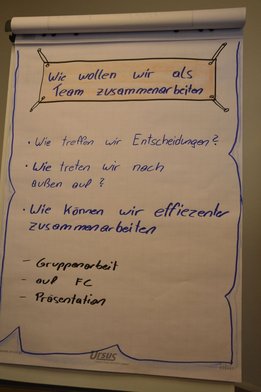 Wie wollen wir als
Team zusammenarbeiten
• Wie treffen wir Entscheidungen?
• Wie treten wir nach
außen auf?
• Wie können wir effiezenter
zusammenarbeiten
- Gruppenarbeit
- auf FC
- Präsentation
Ursus